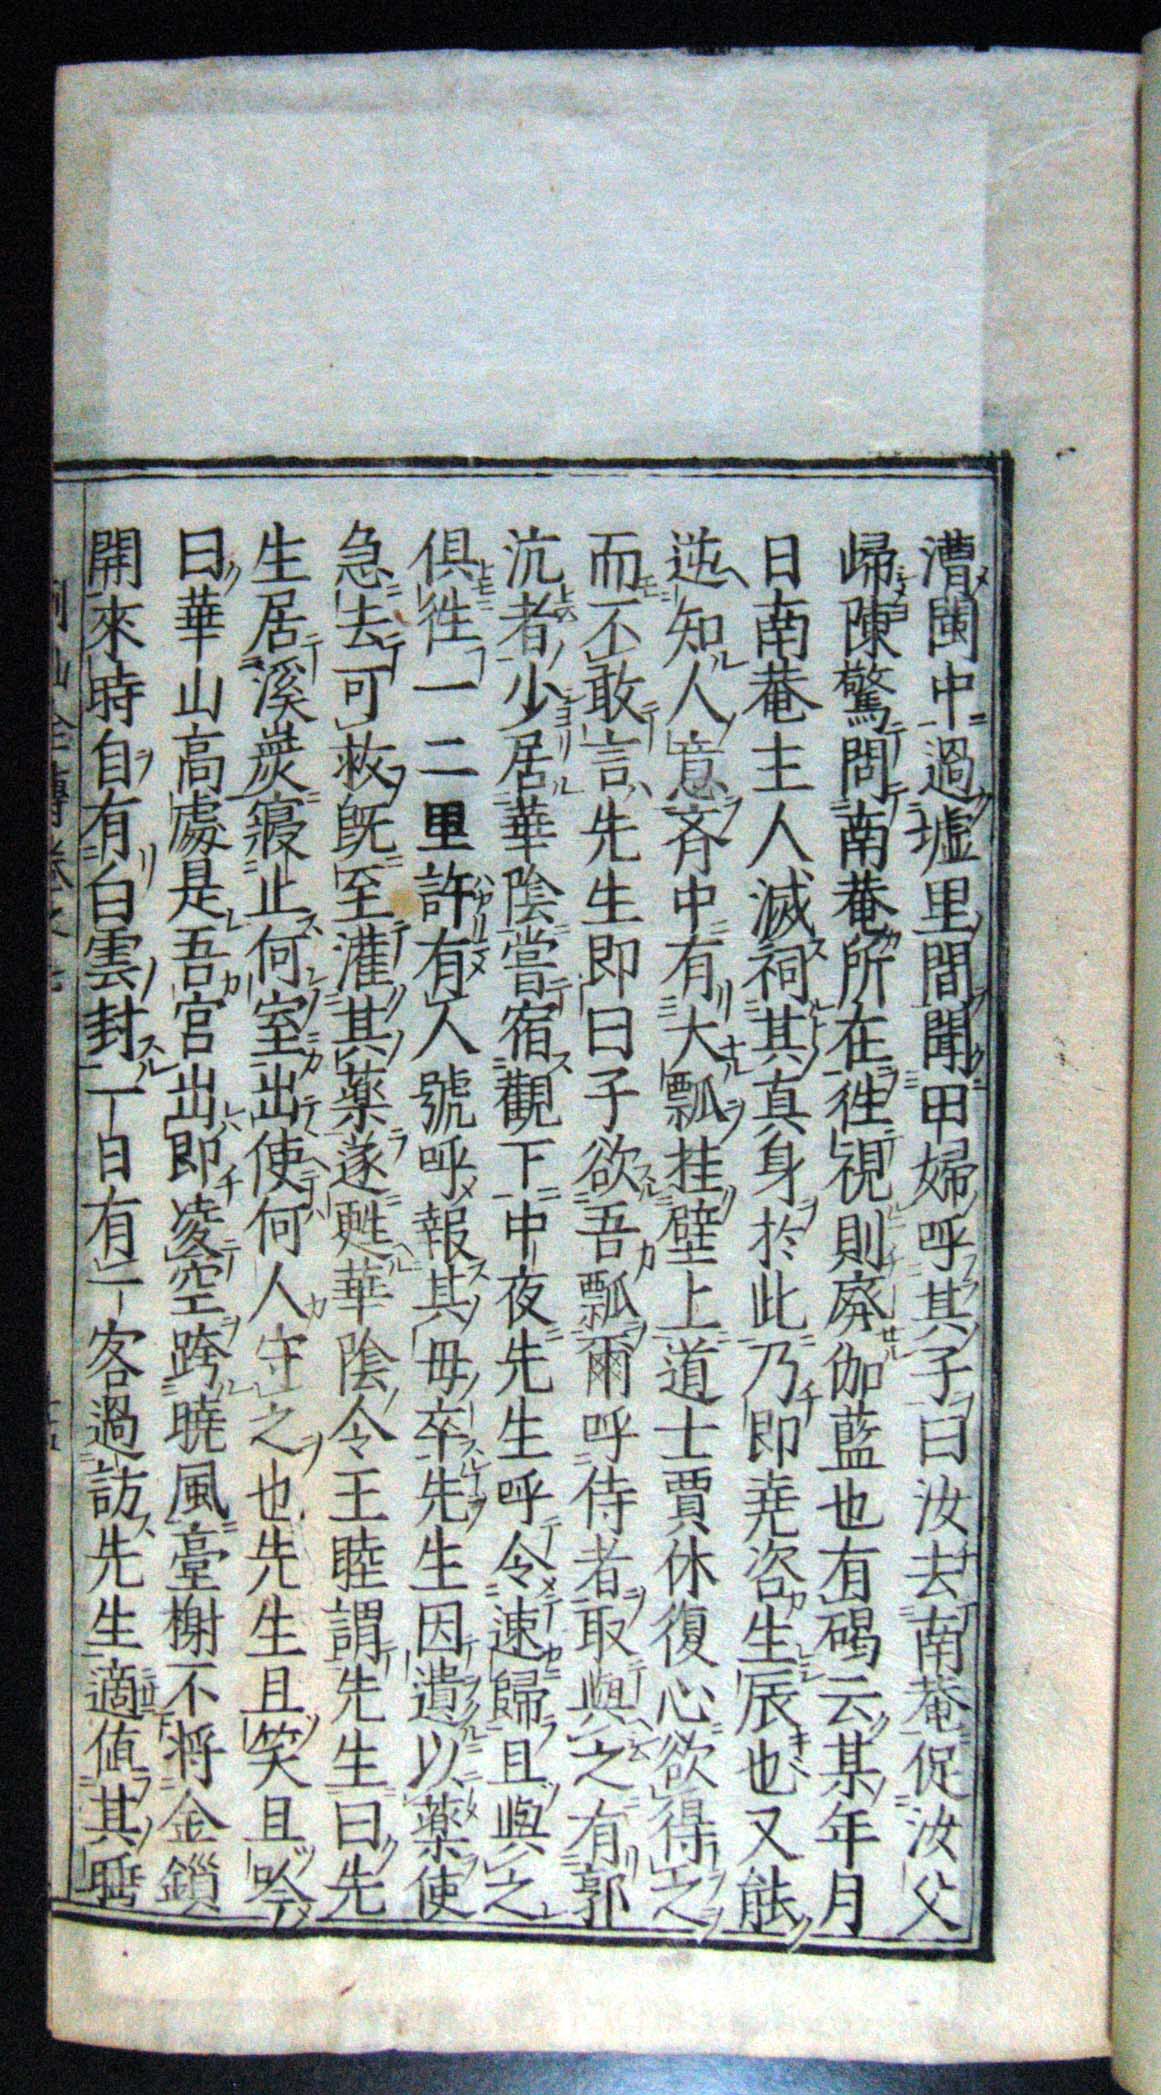 漕閩中過墟里間聞甲婦呼其子曰汝去南菴促汝父
歸陳驚問南菴所在徃視則廃伽藍也有碣云某年月
日南菴主人滅祠其真身於此乃即尭咨生辰也又能
逆知人意斉中有大瓢挂壁上道士賈休復心欲得之
而不敢言先生即曰子欲吾瓢爾呼侍者取與之有郭
沆者少居華陰嘗宿觀下中夜先生呼令速歸且與之
俱徃一二里許有人號呼報其母卒先生因遺以藥使
急去可救既至灌其藥遂甦華陰令王睦謂先生曰先
生居溪巖寢止何室出使何人守之也先生且笑且吟
曰華山高處是吾宮出即凌空跨曉風臺榭不将金鎖
閉來時自有白雲封一日有一客過訪先生適値其睡